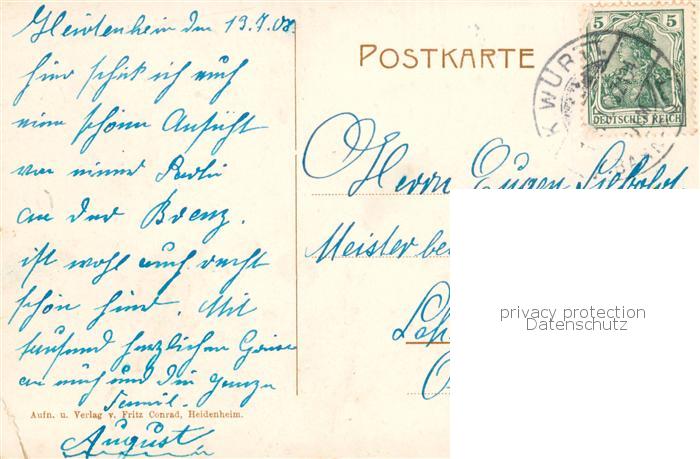 Heidenheim den 13.7.08.
hier schick ich euch
eine schöne Ansicht
von einer Partie
an der Brenz.
ist wohl auch recht
schön hier. Mit
tausend herzlichen Grüsse
an euch und die ganze
Famil.
August
Aufn. u. Verlag v. Fritz Conrad, Heidenheim.
POSTKARTE
5 5
DEUTSCHES REICH
K WÜRTT.
Herrn Eugen Siebold
Meister be
Sch
privacy protection
Datenschutz